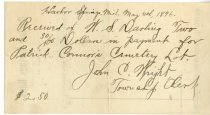 Harbor Springs Mich May 1st 1896.
Received of W. S. Darling Two
and 50/100 Dollars in payment for
Patrick Connors Cemetery Lot.
John C. Wright
Township Clerk
$2.50